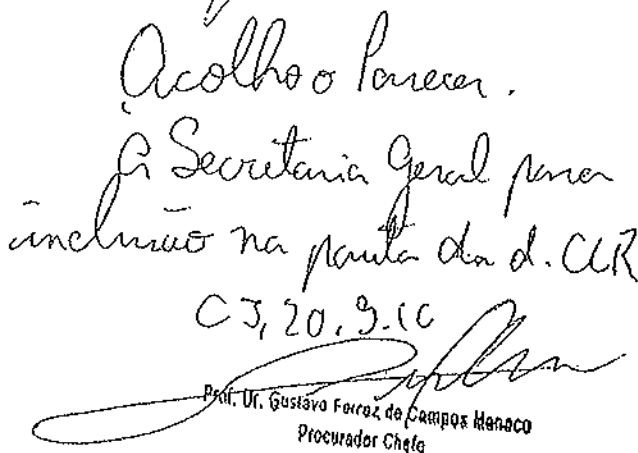 Acolho o Parecer.
À Secretaria Geral para
inclusão na pauta da d. CLR
CJ, 20.9.10
Prof. Dr. Gustavo Ferraz de Campos Monaco
Procurador Chefe